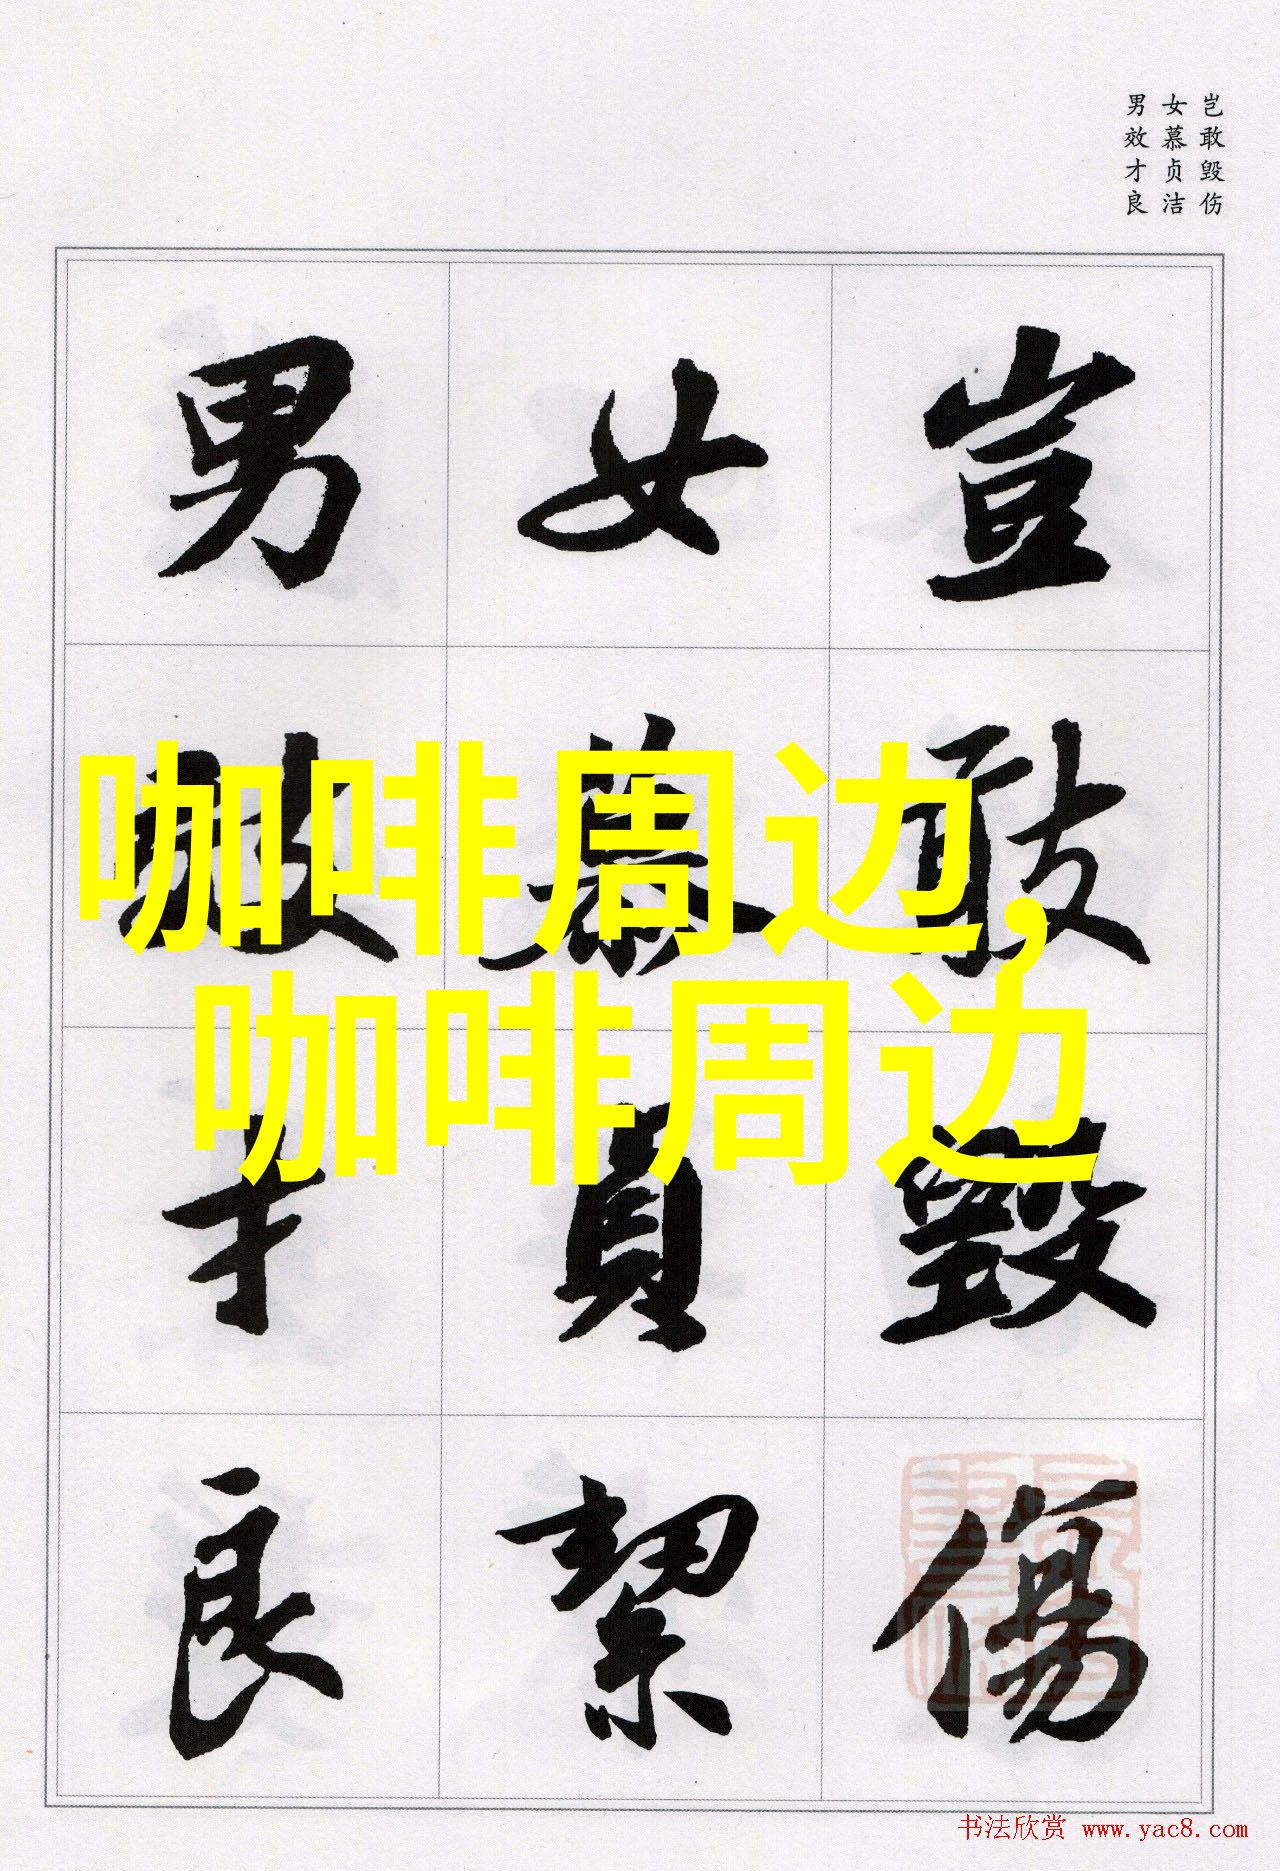 岂敢毁伤
女慕贞洁
男效才良
豈敢毀傷
女慕貞絜
男效才良
咖啡周边,
咖啡周边
书法欣赏 www.yac8.com